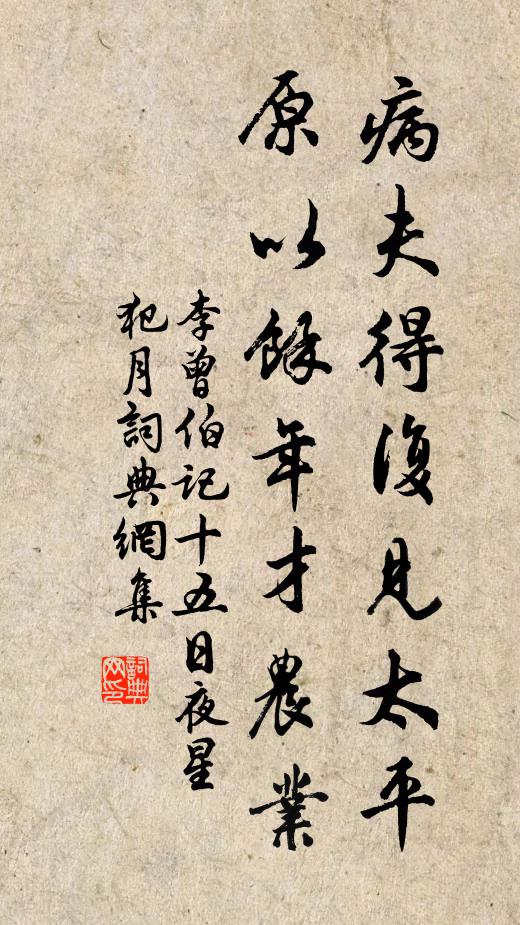 病夫得復見太平
原以餘年才農業
李曾伯記十五日夜星
犯月詞典網集
詞典網印